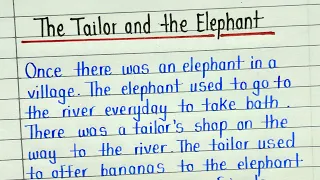 The Tailor and the Elephant
Once there was an elephant in a
village. The elephant used to go to
the river everyday to take bath.
There was a tailor's shop on the
way to the river. The tailor used
to offer bananas to the elephant.